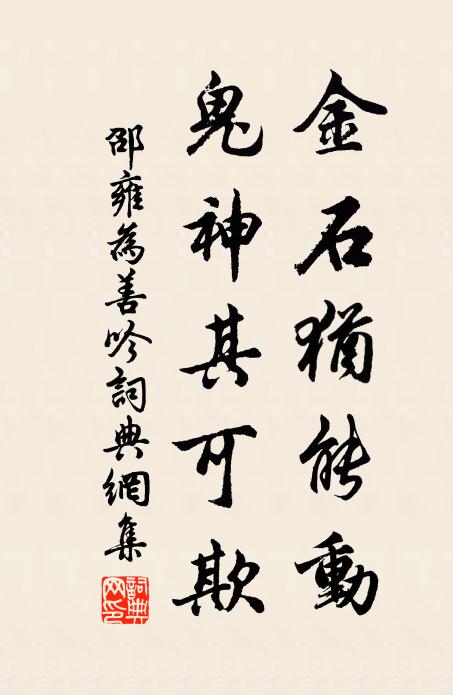 金石猶能動
鬼神其可欺
邵雍為善吟詞典網集
詞典網印